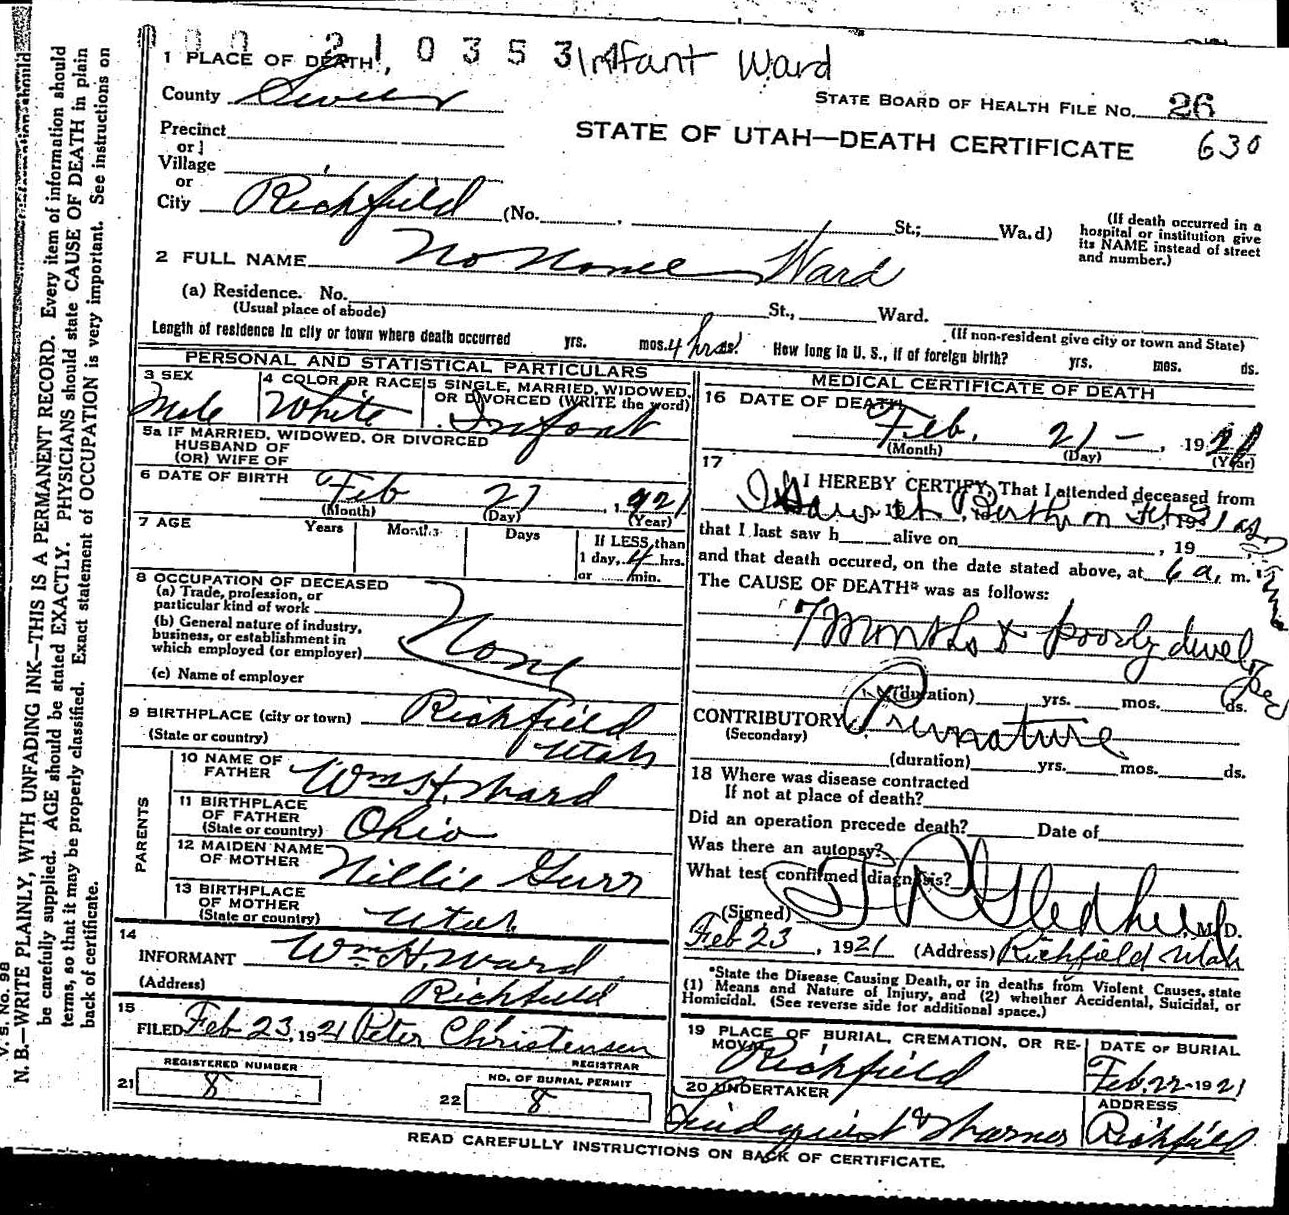 210353 Infant Ward
1 PLACE OF DEATH,
County Sevier
STATE BOARD OF HEALTH FILE No. 26
Precinct
or
STATE OF UTAH—DEATH CERTIFICATE 630
Village
or
City Richfield (No. , St.; Ward)
(If death occurred in a hospital or institution give its NAME instead of street and number.)
2 FULL NAME No Name Ward
(a) Residence. No. St., Ward.
(Usual place of abode) (If non-resident give city or town and State)
Length of residence in city or town where death occurred yrs. mos. 4 hrs. How long in U. S., if of foreign birth? yrs. mos. ds.
PERSONAL AND STATISTICAL PARTICULARS
3 SEX Male
4 COLOR OR RACE White
5 SINGLE, MARRIED, WIDOWED, OR DIVORCED (WRITE the word) Infant
5a IF MARRIED, WIDOWED, OR DIVORCED
HUSBAND OF
(OR) WIFE OF
6 DATE OF BIRTH Feb 21 1921
(Month) (Day) (Year)
7 AGE Years Months Days If LESS than
1 day, 4 hrs.
or min.
8 OCCUPATION OF DECEASED
(a) Trade, profession, or
particular kind of work
(b) General nature of industry,
business, or establishment in
which employed (or employer) None
(c) Name of employer
9 BIRTHPLACE (city or town) Richfield
(State or country) Utah
PARENTS
10 NAME OF FATHER Wm H. Ward
11 BIRTHPLACE OF FATHER
(State or country) Ohio
12 MAIDEN NAME OF MOTHER Nillie Gurr
13 BIRTHPLACE OF MOTHER
(State or country) Utah
14
INFORMANT Wm H. Ward
(Address) Richfield
15
FILED Feb 23, 1921 Peter Christensen
REGISTRAR
REGISTERED NUMBER
21 8
NO. OF BURIAL PERMIT
22 8
MEDICAL CERTIFICATE OF DEATH
16 DATE OF DEATH
Feb. 21 - , 1921
(Month) (Day) (Year)
17
I HEREBY CERTIFY, That I attended deceased from
that I last saw h alive on , 19
and that death occured, on the date stated above, at 6 a. m.
The CAUSE OF DEATH* was as follows:
7 months & poorly developed
(duration) yrs. mos. ds.
CONTRIBUTORY Premature
(Secondary)
(duration) yrs. mos. ds.
18 Where was disease contracted
If not at place of death?
Did an operation precede death? Date of
Was there an autopsy?
What test confirmed diagnosis?
(Signed) J R Gledhill, M. D.
Feb 23, 1921 (Address) Richfield Utah
*State the Disease Causing Death, or in deaths from Violent Causes, state
(1) Means and Nature of Injury, and (2) whether Accidental, Suicidal, or
Homicidal. (See reverse side for additional space.)
19 PLACE OF BURIAL, CREMATION, OR REMOVAL Richfield
DATE OF BURIAL
Feb. 22-1921
20 UNDERTAKER
ADDRESS
Richfield
READ CAREFULLY INSTRUCTIONS ON BACK OF CERTIFICATE.
V. S. No. 98
N. B.—WRITE PLAINLY, WITH UNFADING INK—THIS IS A PERMANENT RECORD. Every item of information should
be carefully supplied. AGE should be stated EXACTLY. PHYSICIANS should state CAUSE OF DEATH in plain
terms, so that it may be properly classified. Exact statement of OCCUPATION is very important. See instructions on
back of certificate.